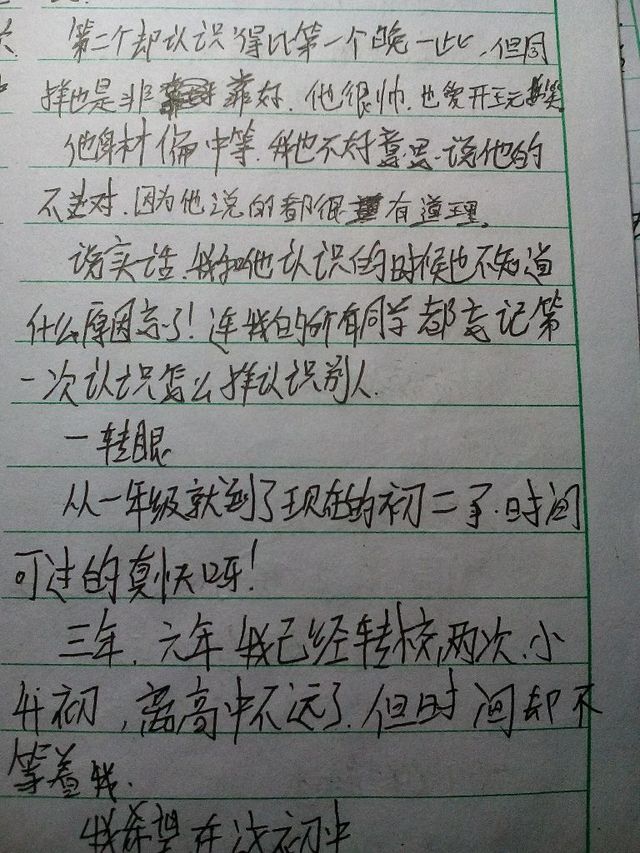 第二个却认识得比第一个晚一些,但同
样也是非 靠好.他很帅.也爱开玩笑
他身材偏中等.我也不好意思说他的
不对.因为他说的都很有道理.
说实话.我和他认识的时候也不知道
什么原因忘了!连我的所有同学都忘记第
一次认识怎么样认识别人.
一转眼
从一年级就到了现在的初二了.时间
可过的真快呀!
三年.六年我已经转校两次.小
升初,离高中不远了.但时间却不
等着我.
我希望在 初中